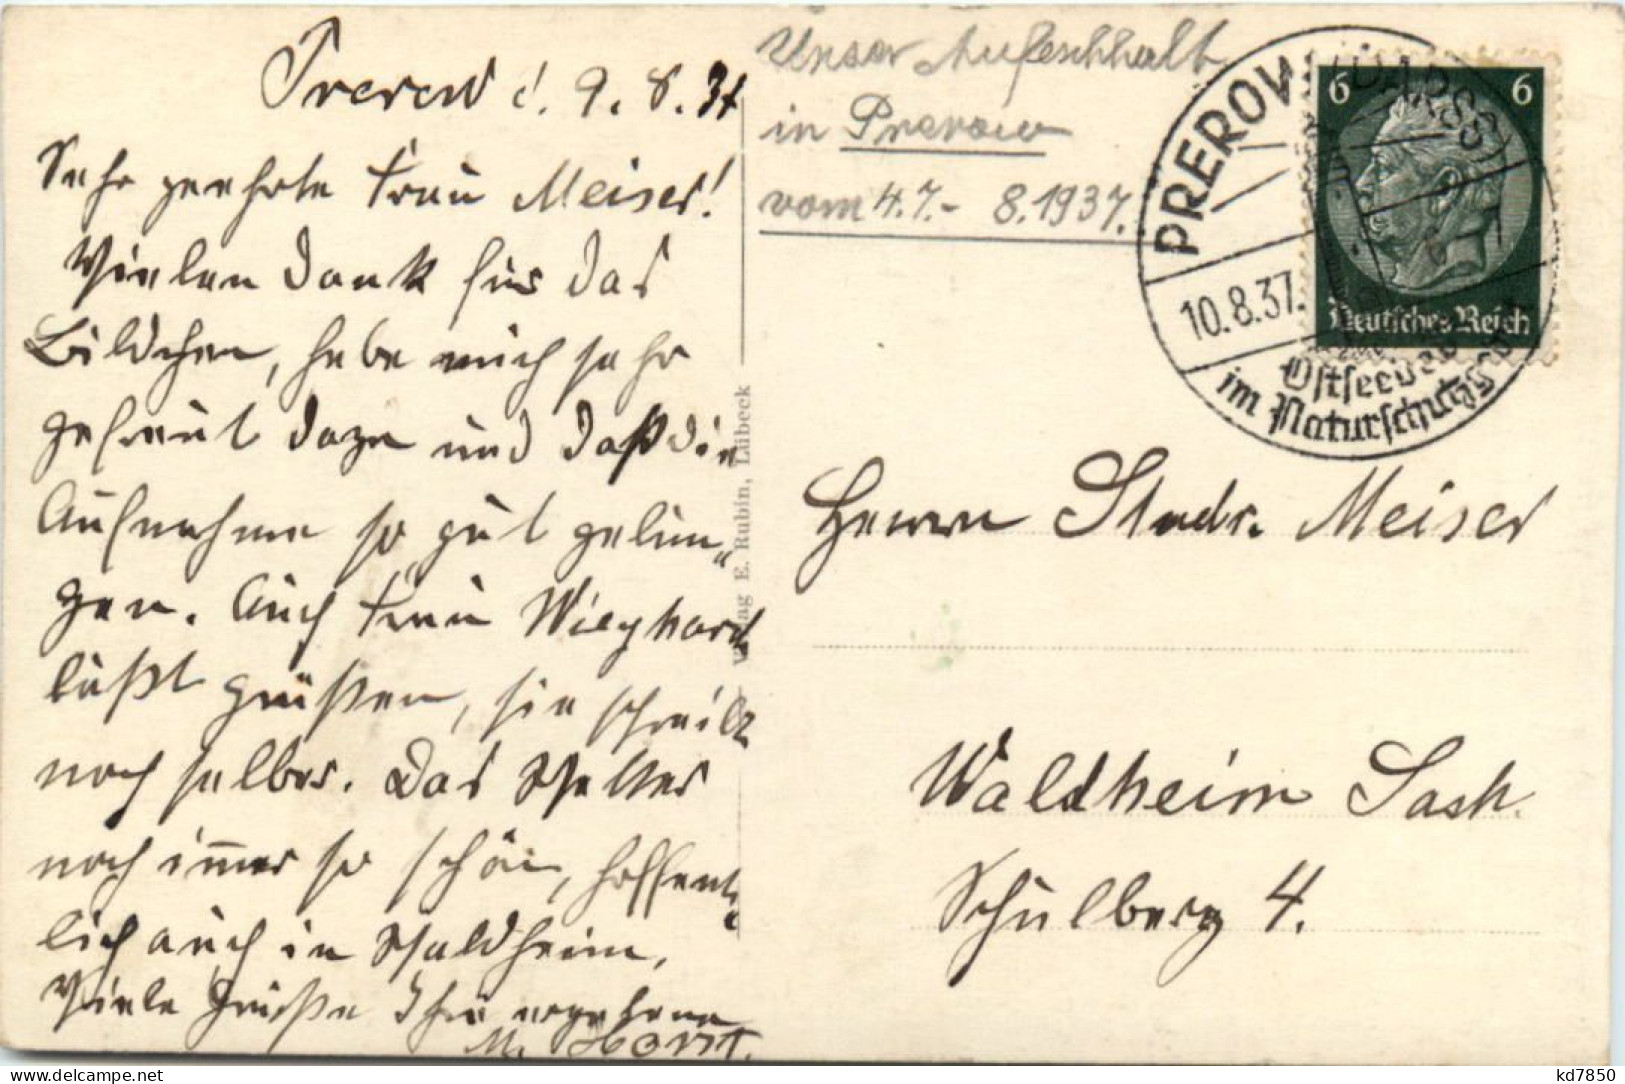 Prerow d. 9.8.37
Sehr geehrte Frau Meiser!
Vielen Dank für das
Bildchen, habe mich sehr
gefreut dazu und daß die
Aufnahme so gut gelun„
gen. Auch Frau Wieghard
läßt grüßen, sie schreibt
noch selber. Das Wetter
noch immer so schön, hoffent„
lich auch in Waldheim,
Viele Grüße Ihre ergebene
M.
Unser Aufeschhalt
in Prerow
vom 4.7.- 8.1937.
PREROW (DARSS)
10.8.37.
Ostseebad
im Naturschutzgebiet
6 6
Deutsches Reich
Verlag E. Rubin, Lübeck
Herrn Studr. Meiser
Waldheim Sach.
Schulberg 4.
kd7850